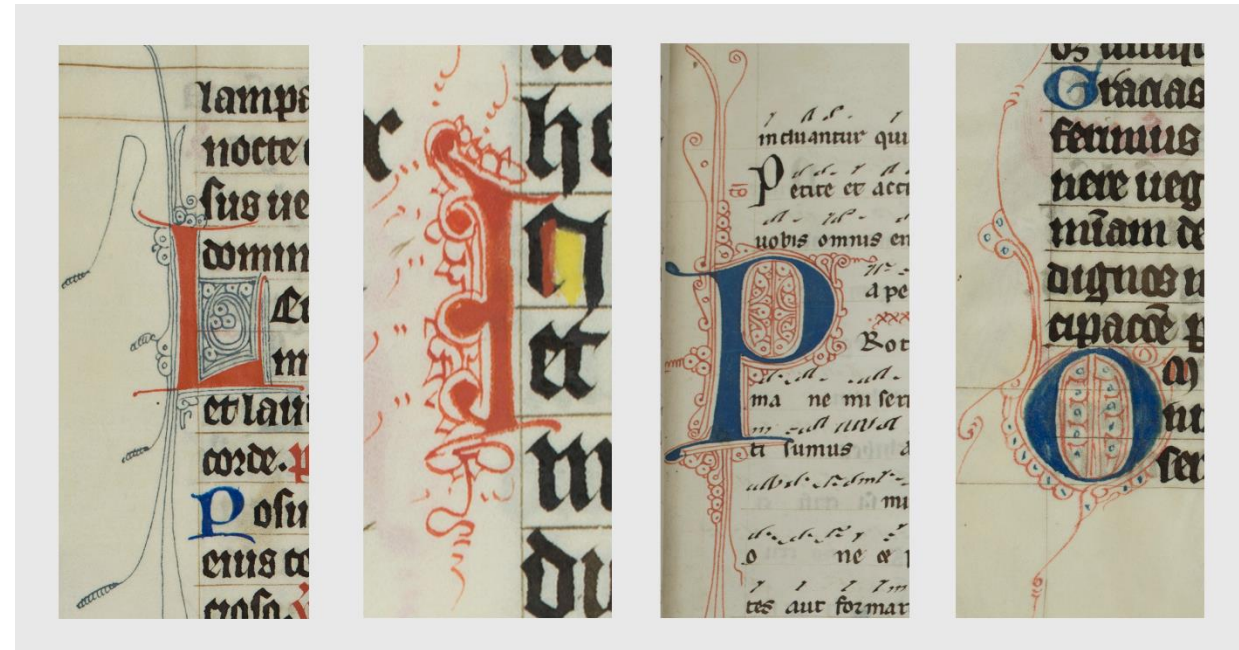 lampa
nocte
sus ue
domin
L Et
in
et laui
corde.
Posu
eius co
cioso.
he
I
et
m
du
incluantur qui
Petite et acci
uobis omnis en
P
a pe
Rot
ma ne miseri
ti sumus a
mi
o ne
tes aut formar
Gracias
ferimus
nere ueg
mīam de
dignos
O
ser